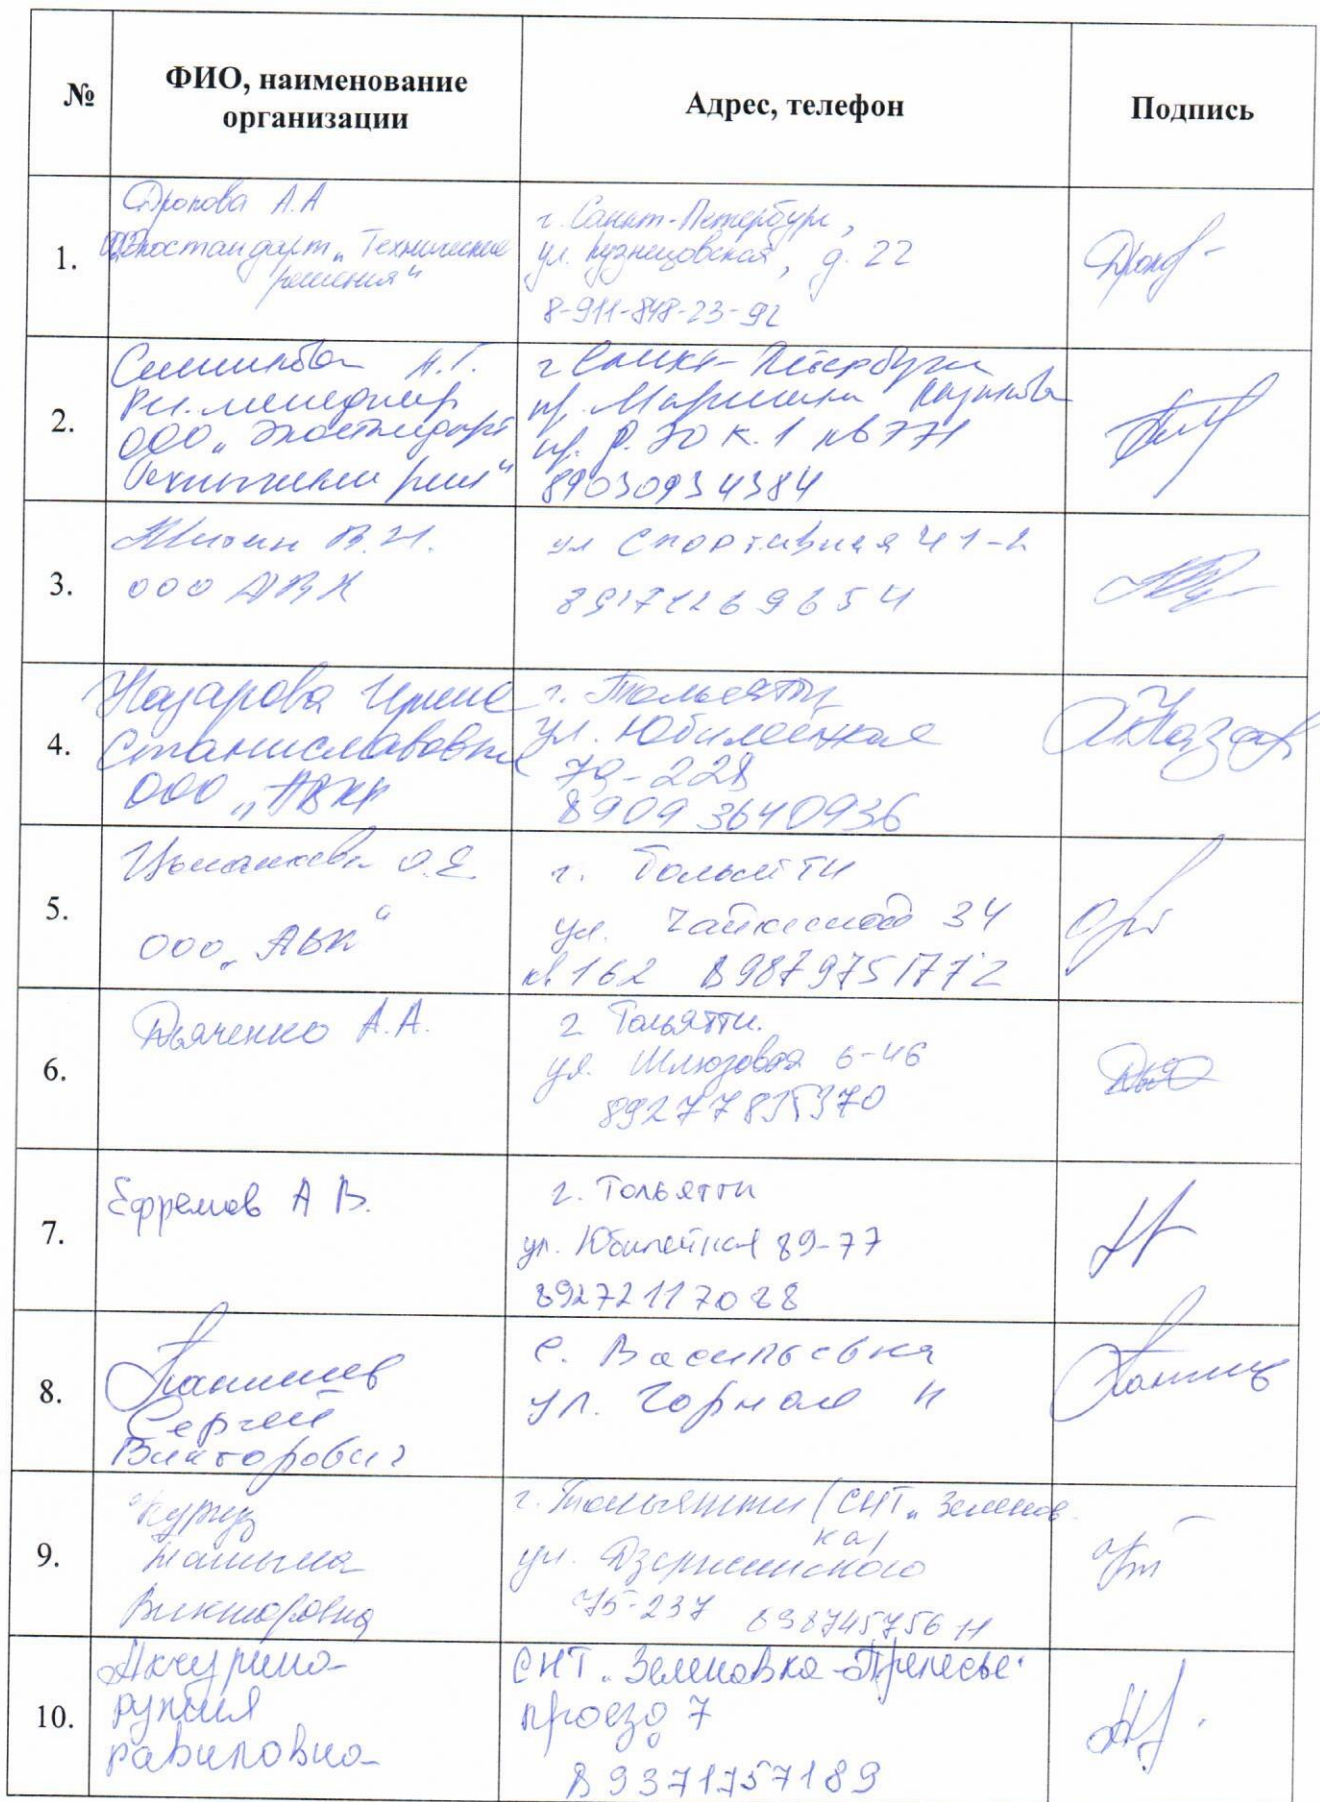 №
ФИО, наименование
организации
Адрес, телефон
Подпись
1.
Дронова А.А
Экостандарт „Технические
решения“
г. Санкт-Петербург,
ул. Кузнецовская, д. 22
8-911-848-23-92
2.
А.Г.
менеджер
ООО „Экостандарт
г Санкт-Петербург
пр. Маршала Казакова
к. 1 кв 771
89030934384
3.
В.И.
ООО АВК
ул Спортивная 41-2
4.
Назарова Ирина
Станиславовна
ООО „АВК“
г. Тольятти
ул. Юбилейная
79-228
89093640936
5.
О.Е.
ООО „АВК“
г. Тольятти
ул. Чайкиной 34
кв. 162 89879751772
6.
Дьяченко А.А.
г Тольятти.
ул. Шлюзовая 6-46
7.
Ефремов А В.
г. Тольятти
ул. Юбилейная 89-77
8.
Сергей
Викторович
с. Васильевка
ул. Горная
9.
Викторовна
г. Тольятти (СНТ „Зеленов
ка)
ул. Дзержинского
75-237 89874575611
10.
Акчурина
равиловна
СНТ „Зеленовка-Прилесье“
проезд 7
89371757189